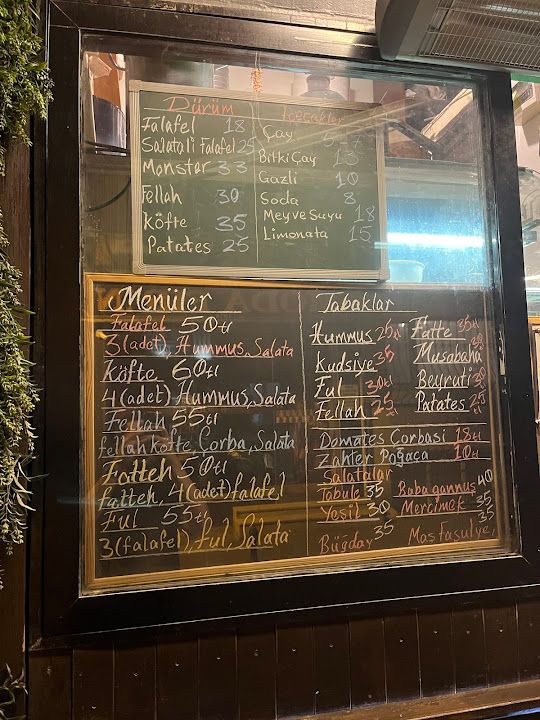 Dürüm
Falafel 18
Salatali Falafel 25
Monster 33
Fellah 30
Köfte 35
Patates 25
İçecekler
Çay
Bitki Çay 13
Gazli 10
Soda 8
Meyve Suyu 18
Limonata 15
Menüler
Falafel 50tl
3(adet), Hummus, Salata
Köfte 60tl
4(adet) Hummus, Salata
Fellah 55tl
fellah köfte, Çorba, Salata
Fatteh 50tl
Fatteh, 4(adet) falafel
Ful 55tl
3(falafel), Ful, Salata
Tabaklar
Hummus 25tl
Kudsiye 35
Ful 30tl
Fellah 25tl
Fatte 35tl
Musabaha
Beyruti
Patates 25
Domates Çorbasi 18tl
Zahter Poğaca 10tl
Salatalar
Tabule 35 Baba gannuş 40
Yeşil 30 Mercimek 35
Buğday 35 Maş Fasulye 35